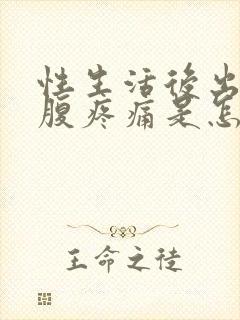 性生活後出
腹疼痛是怎
王命之徒